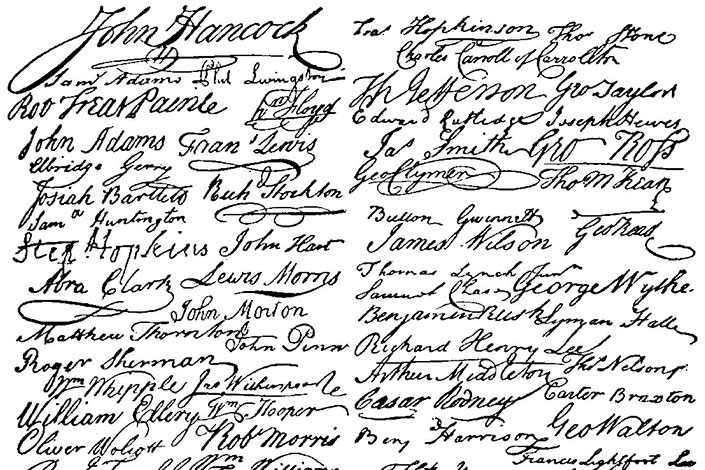 John Hancock
Fra^s Hopkinson Tho^s Stone
Charles Carroll of Carrollton
Sam^l Adams Phil Livingston
Rob^t Treat Paine W^m Floyd
Th Jefferson Geo Taylor
Edward Rutledge Joseph Hewes
John Adams Fran^s Lewis
Ja^s Smith Geo Ross
Elbridge Gerry
Geo Clymer Tho M:Kean
Josiah Bartlett Rich^d Stockton
Sam^el Huntington
Button Gwinnett
James Wilson Geo Read
Step Hopkins John Hart
Abra Clark Lewis Morris
Thomas Lynch Jun^r
Samuel Chase George Wythe
John Morton
Benjamin Rush Lyman Hall
Matthew Thornton John Penn
Richard Henry Lee
Roger Sherman
Arthur Middleton Tho^s Nelson j^r
W^m Whipple Jno Witherspoon
Cæsar Rodney Carter Braxton
William Ellery W^m Hooper
Benj Harrison Geo Walton
Oliver Wolcott Rob^t Morris
Francis Lightfoot Lee